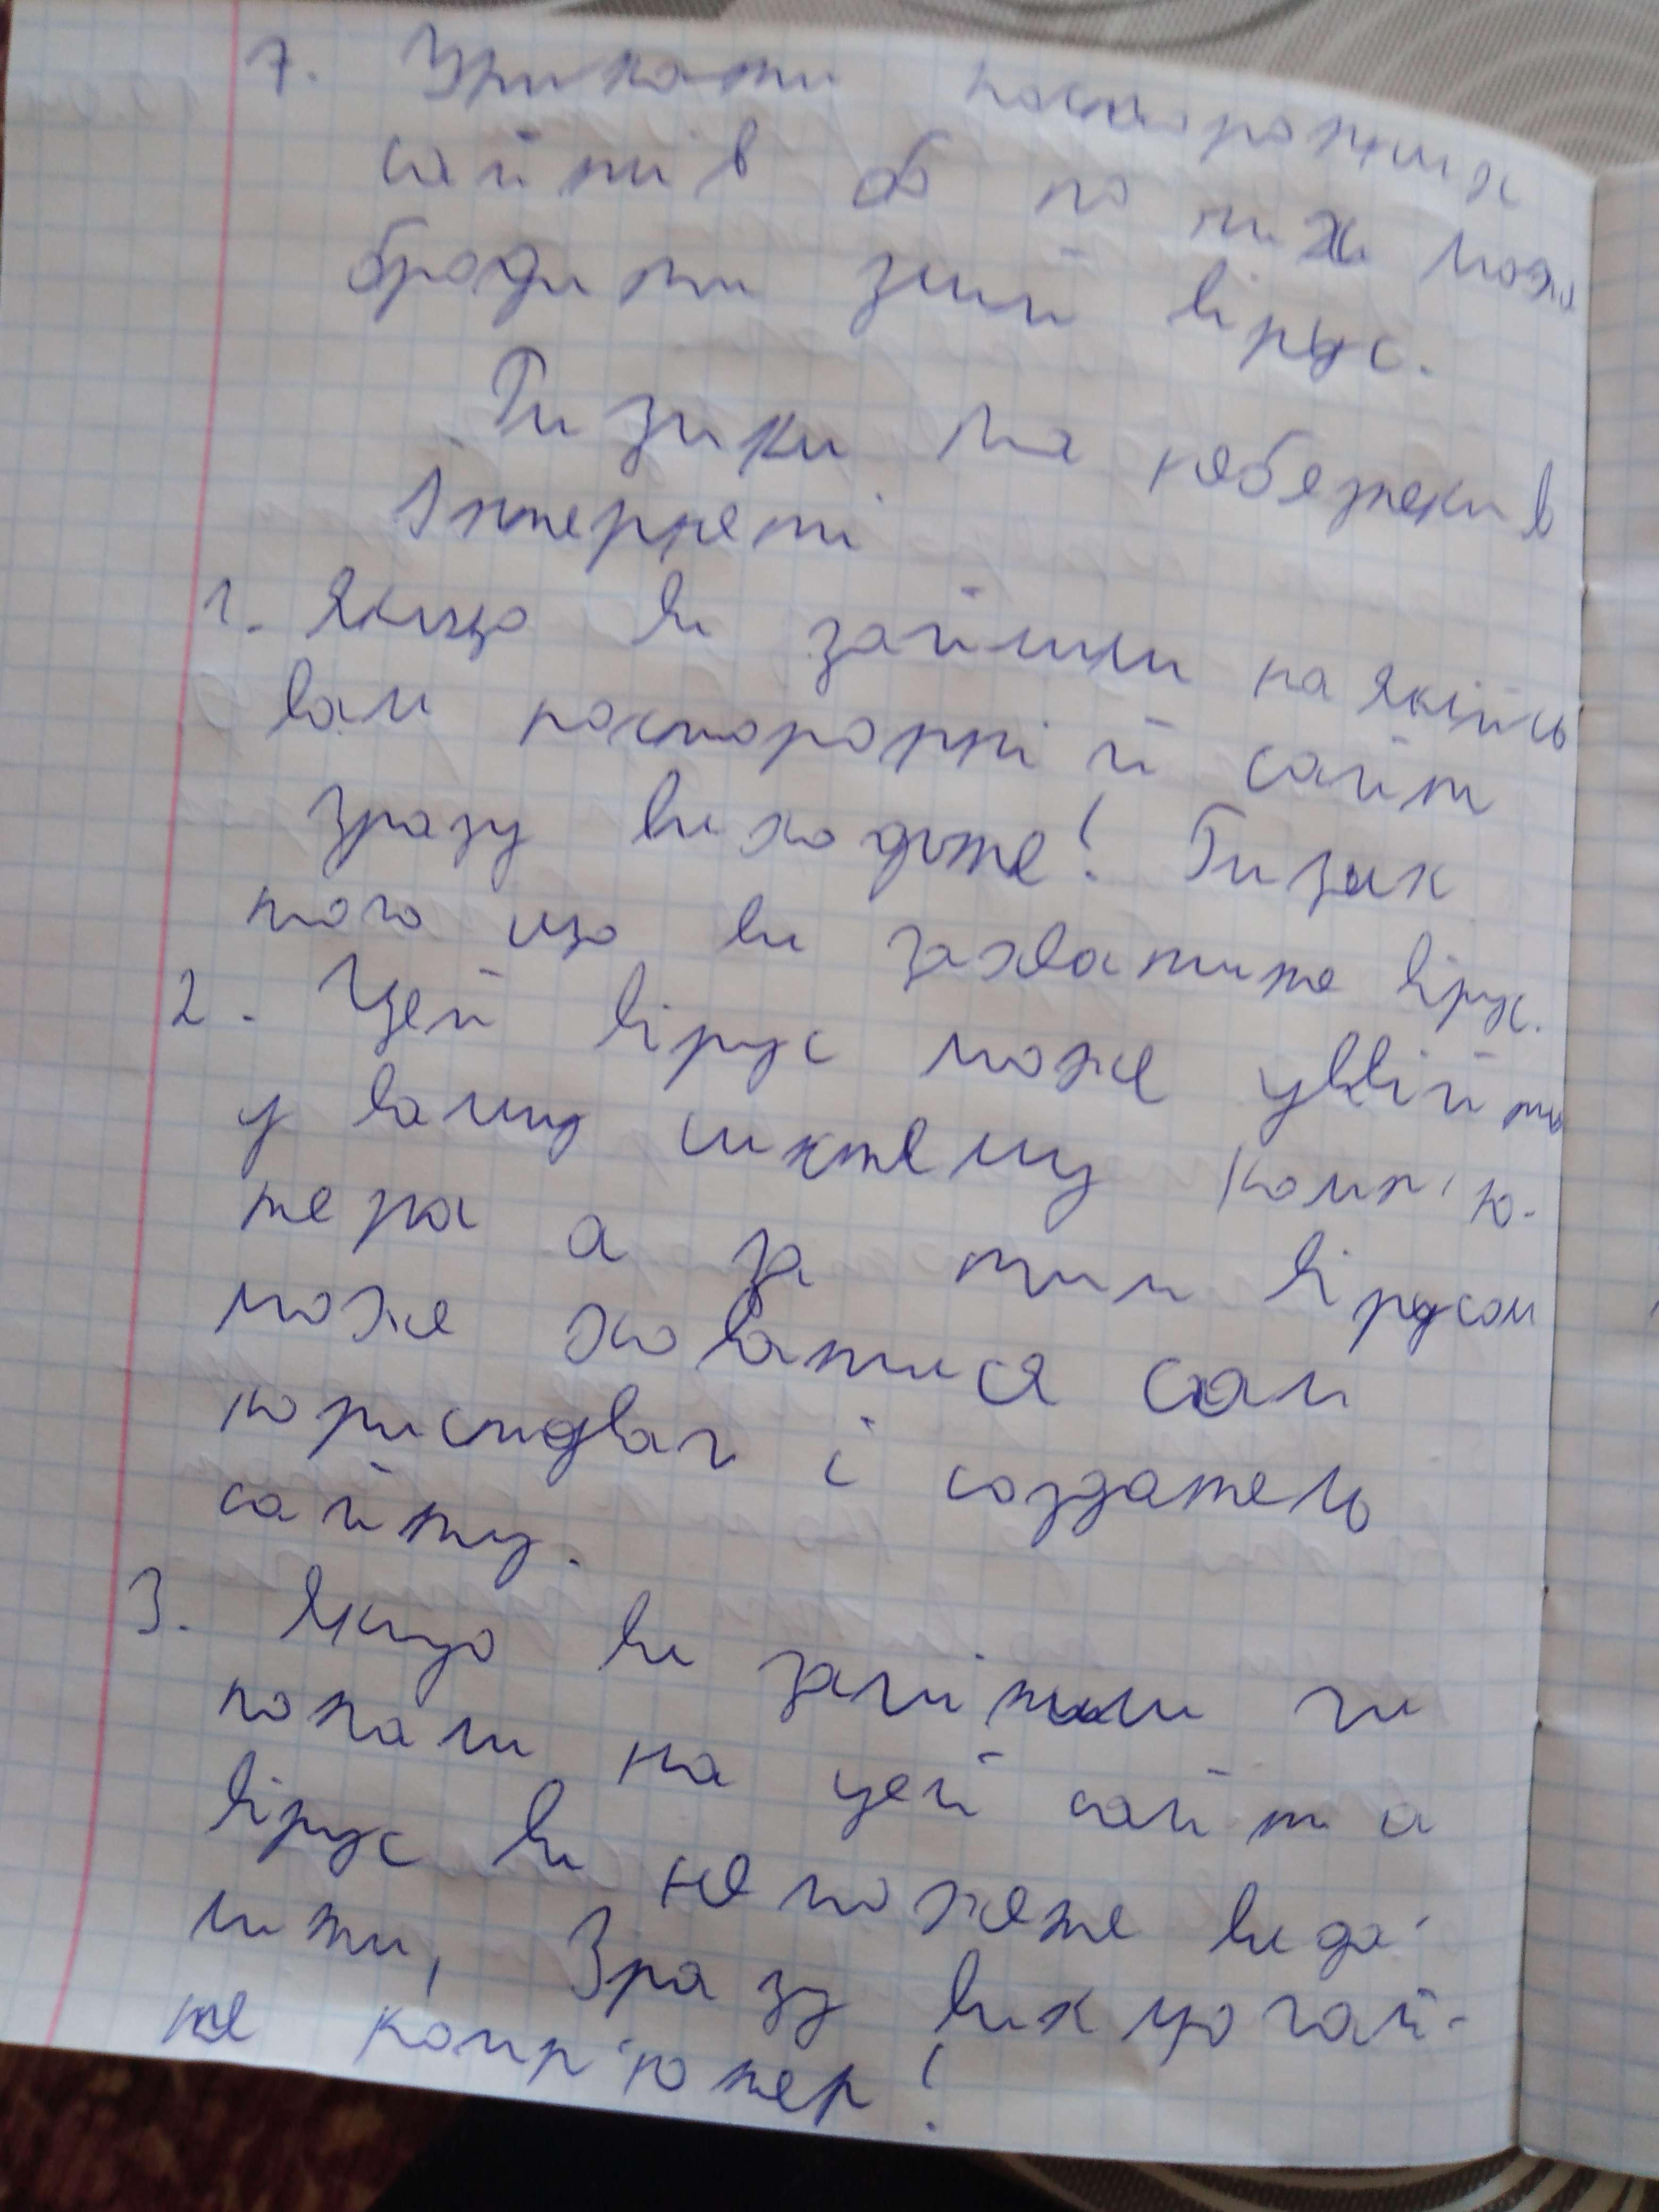 7. Уникати посторонних
сайтів бо по них може
бродити злий вірус.
Ризики та небезпеки в
Інтернеті
1. Якщо ви зайшли на якійсь
вам посторонній сайт
зразу виходьте! Ризик
того що ви захватите вірус.
2. Цей вірус може увійти
у вашу систему комп'ю-
тера а за тим вірусом
може ховатися сам
користувач і создатель
сайту.
3. Якщо ви замітили чи
попали на цей сайт а
вірус ви не можете вида-
лити, Зразу виключай-
те комп'ютер!